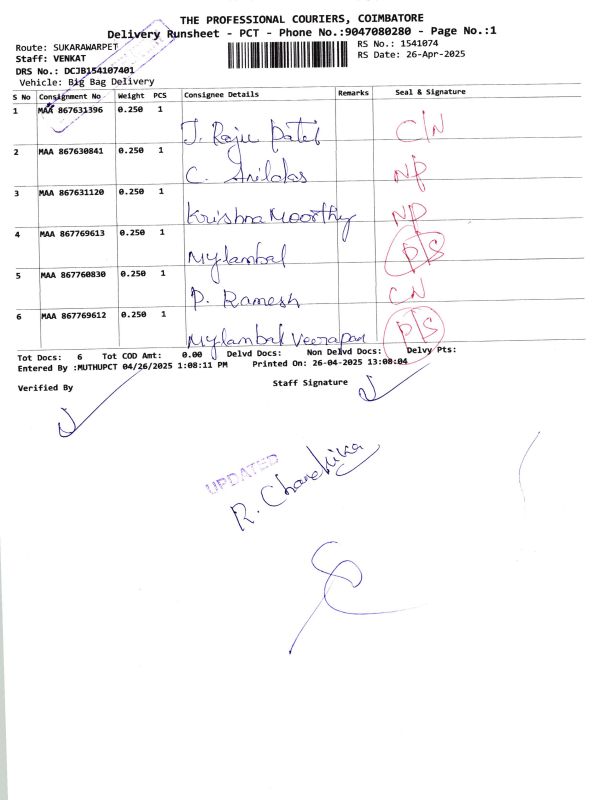 THE PROFESSIONAL COURIERS, COIMBATORE
Delivery Runsheet - PCT - Phone No.:9047080280 - Page No.:1
Route: SUKARAWARPET
RS No.: 1541074
Staff: VENKAT
RS Date: 26-Apr-2025
DRS No.: DCJB154107401
Vehicle: Big Bag Delivery
S No Consignment No Weight PCS Consignee Details Remarks Seal & Signature
1 MAA 867631396 0.250 1 J. Raju Patel C/N
2 MAA 867630841 0.250 1 C. Anildas NP
3 MAA 867631120 0.250 1 Krishna Moorthy NP
4 MAA 867769613 0.250 1 Mylambal P/S
5 MAA 867760830 0.250 1 P. Ramesh CN
6 MAA 867769612 0.250 1 Mylambal Veerapan P/S
Tot Docs: 6 Tot COD Amt: 0.00 Delvd Docs: Non Delvd Docs: Delvy Pts:
Entered By :MUTHUPCT 04/26/2025 1:08:11 PM Printed On: 26-04-2025 13:08:04
Verified By Staff Signature
UPDATED
R. Chandrika